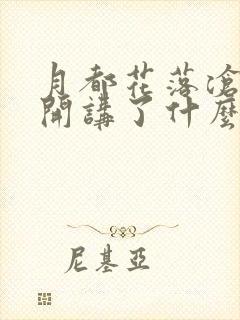 月都花落滄
開講了什麼
尼基亞